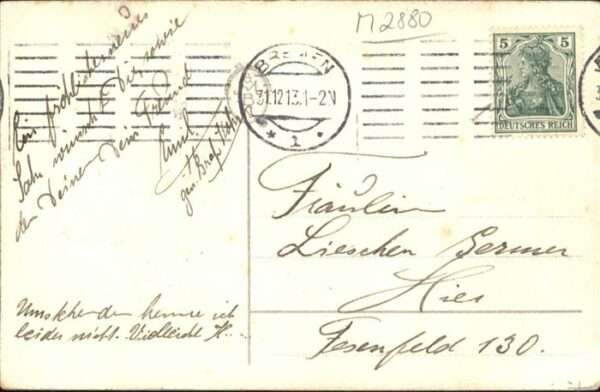 M2880
Ein fröhliches neues
Jahr wünscht Dir sowie
den Deinen Dein Freund
Emil.
BREMEN
31.12.13.1-2N
* 1 *
5 5
DEUTSCHES REICH
Fräulein
Lieschen Germer
Hier
Fesenfeld 130.
Umstehenden kenne ich
leider nicht. Vielleicht H...